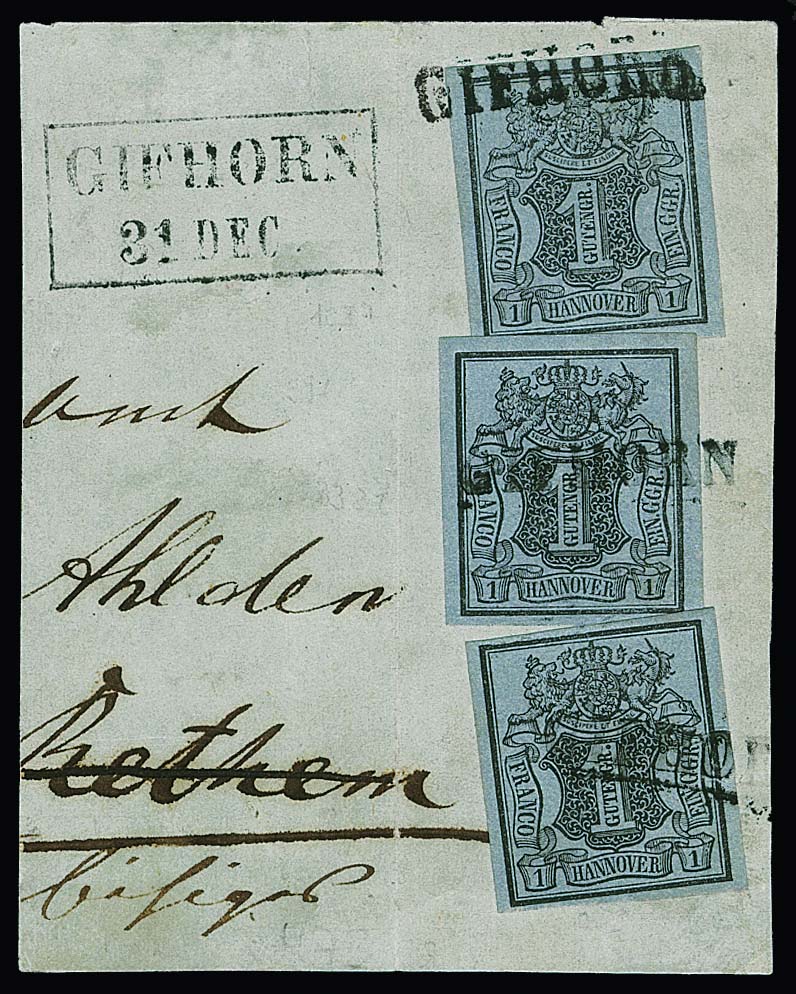 GIFHORN
31 DEC
GIFHORN
SUSCIPERE ET FINIRE
FRANCO
1
GUTENGR.
EIN GGR.
1 HANNOVER 1
SUSCIPERE ET FINIRE
FRANCO
1
GUTENGR.
EIN GGR.
1 HANNOVER 1
GIFHORN
SUSCIPERE ET FINIRE
FRANCO
1
GUTENGR.
EIN GGR.
1 HANNOVER 1
amt
Ahlden
Rethem